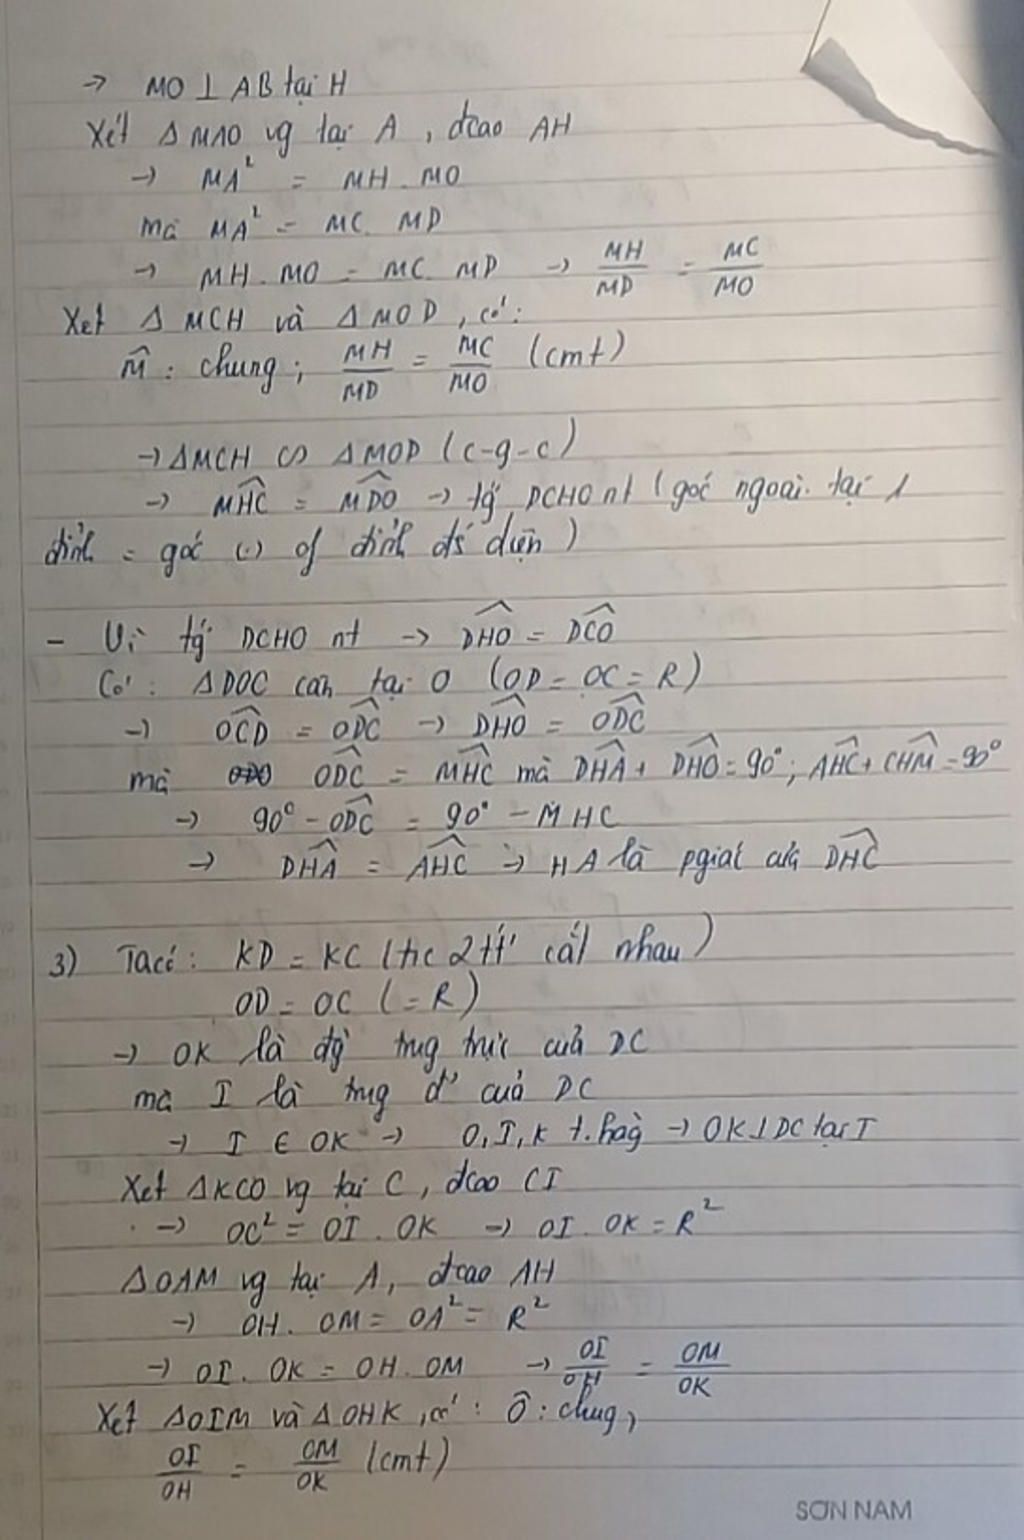 → MO ⊥ AB tại H
Xét Δ MAO vg tại A, đcao AH
→ MA² = MH . MO
mà MA² = MC. MD
→ MH . MO = MC. MD → MH/MD = MC/MO
Xét Δ MCH và Δ MOD, có:
M̂ : chung; MH/MD = MC/MO (cmt)
→ ΔMCH ∽ Δ MOD (c-g-c)
→ MHC = MDO → tg DCHO nt (góc ngoài tại 1
đỉnh = góc (.) of đỉnh đ' diện)
- Vì tg DCHO nt → DHO = DCO
Có : ΔDOC cân tại O (OD = OC = R)
→ OCD = ODC → DHO = ODC
mà ODC = MHC mà DHA + DHO = 90°; AHC + CHM = 90°
→ 90° - ODC = 90° - MHC
→ DHA = AHC → HA là pgiác của DHC
3) Ta có: KD = KC (t/c 2 tt' cắt nhau)
OD = OC (= R)
→ OK là đg trug trực của DC
mà I là trug đ' của DC
→ I ∈ OK → O, I, K t.hàg → OK ⊥ DC tại I
Xét ΔKCO vg tại C, đcao CI
→ OC² = OI . OK → OI . OK = R²
ΔOAM vg tại A, đcao AH
→ OH . OM = OA² = R²
→ OI . OK = OH . OM → OI/OH = OM/OK
Xét ΔOIM và ΔOHK, có : Ô : chug,
OI/OH = OM/OK (cmt)
SƠN NAM